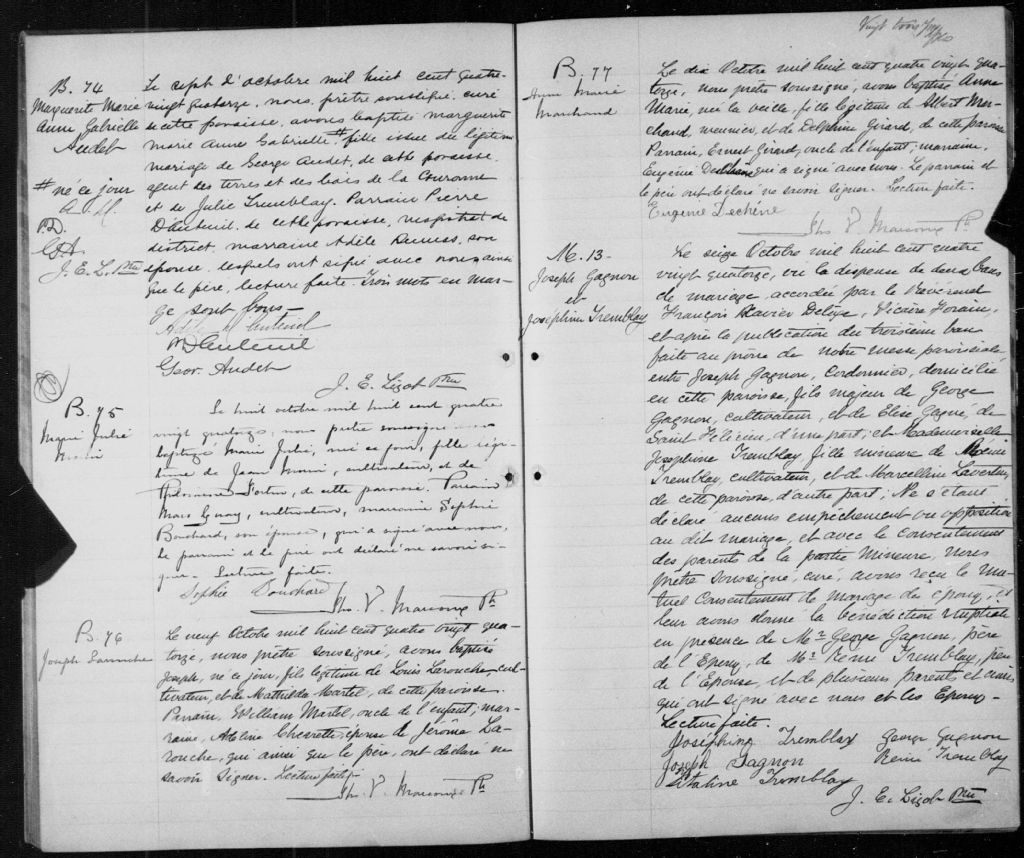 B. 74
Marguerite Marie
Anne Gabrielle
Audet
# né ce jour
P.D.
G.A.
J. E. L. Ptre
Le sept d'octobre mil huit cent quatre-
vingt quatorze, nous, prêtre soussigné, curé
de cette paroisse, avons baptisé marguerite
marie Anne Gabrielle # fille issue du légitime
mariage de George Audet, de cette paroisse,
agent des terres et des bois de la Couronne
et de Julie Tremblay. Parrain Pierre
D'Auteuil, de cette paroisse, magistrat de
district, marraine Adèle Dumas, son
épouse, lesquels ont signé avec nous ainsi
que le père, lecture faite. Trois mots en mar-
ge sont bons
D'Auteuil
PD'Auteuil
Geor. Audet
J. E. Lizot Ptre
B. 75
Marie Julie
Morin
Le huit octobre mil huit cent quatre
vingt quatorze, nous prêtre soussigné avons
baptisé Marie Julie, née ce jour, fille légi-
time de Jean Morin, cultivateur, et de
Fortin, de cette paroisse. Parrain
Marc Guay, cultivateur, marraine Sophie
Bouchard, son épouse, qui a signé avec nous,
le parrain et le père ont déclaré ne savoir si-
gner. Lecture faite.
Sophie Bouchard
Ths. V. Marcoux Ptr
B. 76
Joseph Larouche
Le neuf Octobre mil huit cent quatre vingt qua-
torze, nous prêtre soussigné, avons baptisé
Joseph, né ce jour, fils légitime de Louis Larouche, cul-
tivateur, et de Mathilda Martel, de cette paroisse.
Parrain, William Martel, oncle de l'enfant; mar-
raine, Adeline épouse de Jérôme La-
rouche, qui ainsi que le père, ont déclaré ne
savoir signer. Lecture faite
Ths. V. Marcoux Ptr
Vingt trois
B. 77
Anne Marie
Marchand
Le dix Octobre mil huit cent quatre vingt qua-
torze, nous prêtre soussigné, avons baptisé Anne
Marie, née la veille, fille légitime de Albert Mar-
chand, meunier, et de Delphine Girard, de cette paroisse
Parrain, Ernest Girard, oncle de l'enfant; marraine,
Eugénie Deschêne qui a signé avec nous. Le parrain et
le père ont déclaré ne savoir signer. Lecture faite.
Eugenie Dechêne
Ths V. Marcoux Ptr
M. 13-
Joseph Gagnon
et
Joséphine Tremblay
Le seize Octobre mil huit cent quatre
vingt quatorze, vu la dispense de deux bans
de mariage, accordée par le Révérend
François Xavier Delâge, Vicaire Forain,
et après la publication du troisième ban
faite au prône de notre messe paroissiale,
entre Joseph Gagnon, Cordonnier, domicilié
en cette paroisse, fils majeur de George
Gagnon, cultivateur, et de Elise Gagné, de
Saint Félicien, d'une part; et Mademoiselle
Joséphine Tremblay, fille mineure de Rémi
Tremblay, cultivateur, et de Marcelline Laverdure,
de cette paroisse, d'autre part; Ne s'étant
déclaré aucuns empêchement ou opposition
au dit mariage, et avec le Consentement
des parents de la partie mineure, Nous
prêtre soussigné, curé, avons reçu le mu-
tuel Consentement de mariage des époux, et
leur avons donné la bénédiction nuptiale
en présence de Mr George Gagnon, père
de l'Epoux, de Mr Rémi Tremblay, père
de l'Epouse, et de plusieurs parents et amis
qui ont signé avec nous et les Epoux
Lecture faite.
Joséphine Tremblay George Gagnon
Joseph Gagnon Remi Tremblay
Tremblay
J. E. Lizot Ptre